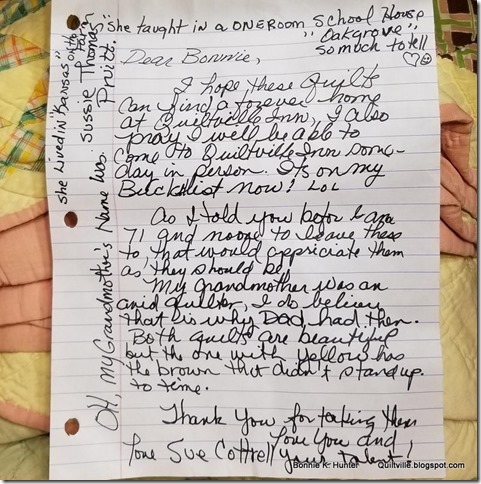 She taught in a ONEROOM School House
"Oakgrove"
so much to tell
Dear Bonnie,
I hope these Quilts
can find a forever home
at Quiltville Inn, I also
pray I will be able to
come to Quiltville Inn some-
day in person. Its on my
Bucklist now! LOL
As I told you befor I am
71 and noone to leave these
to, that would appriciate them
as they should be!
My Grandmother was an
avid quilter, I do believe
that is why Dad had them.
Both quilts are beautiful
but the one with yellow has
the brown that didn't stand up
to time.
Thank You for taking them
Love You and
your talent!
Love Sue Cottrell
OH, my Grandmother's Name was.
Sussie Thomas
Pruitt.
She Lived in "Kansas" on the
farm
Bonnie K. Hunter Quiltville.blogspot.com